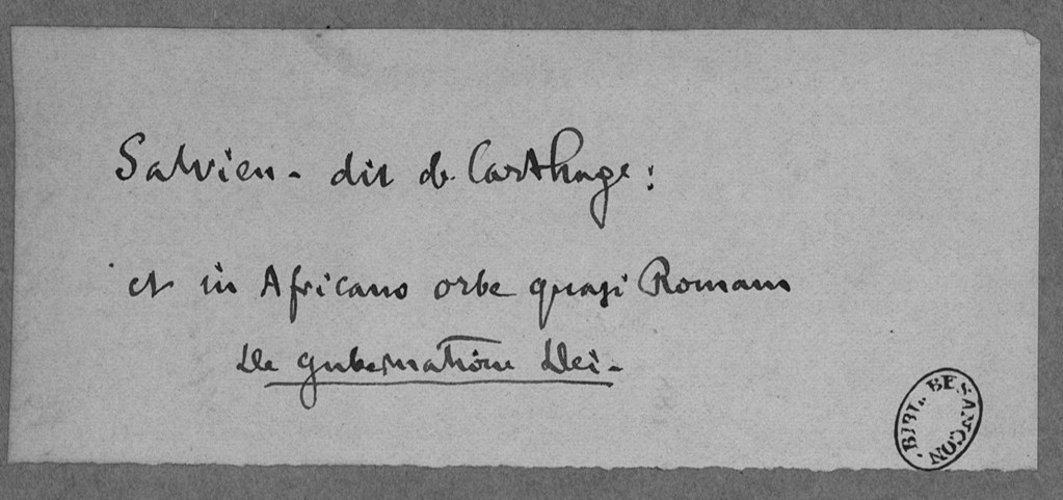 Salvien - dit de Carthage :
et in Africano orbe quasi Romam
De gubernatione Dei -
BIBL. BESANCON